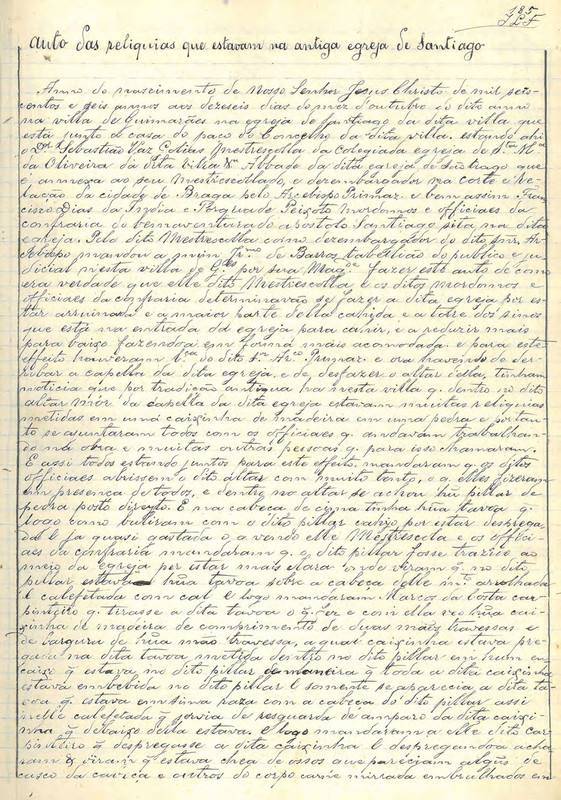 185
Auto das reliquias que estavam na antiga egreja de Santiago
Anno do nascimento de Nosso Senhor Jesus Christo de mil seis-
centos e seis annos aos dezeseis dias do mez d'outubro do dito anno
na villa de Guimarães na egreja de Santiago da dita villa que
está junto á casa do paço do Concelho da dita villa. estando ahi
o Dr. Sebastião Vaz Mestrescolla da Collegiada egreja de S.ta M.a
da Oliveira da dita villa Abbade da dita egreja de Santiago que
é annexa ao seu Mestrescollado, e dezembargador na corte e Re-
lação da cidade de Braga pelo Arcebispo Primaz e bem assim Fran-
cisco Dias da e Peixoto mordomos e officiaes da
confraria do bemaventurado apostolo Santiago sita na dita
egreja. Pelo dito Mestrescolla como dezembargador do dito snr. Ar-
cebispo mandou a mim de Barros tabellião do publico e ju-
dicial nesta villa de por sua Mag.de fazer este auto de como
era verdade que elle dito Mestrescolla e os ditos mordomos e
officiaes da confraria determinavão se fazer a dita egreja por es-
tar arruinada e a maior parte della cahida e a torre dos sinos
que está na entrada da egreja para cahir, e a reduzir mais
para baixo fazendo-a em forma mais acomodada e para este
effeito houveram do dito Primaz. e ora havendo de der-
ribar a capella da dita egreja, e de desfazer o altar della, tinham
noticia que por tradição antiga ha nesta villa q. dentro no dito
altar mór da capella da dita egreja estavam muitas reliquias
metidas em uma caixinha de madeira em uma pedra e portan-
to se ajuntaram todos com os officiaes q. andavam trabalhan-
do na obra e muitas outras pessoas q. para isso chamaram.
E assi todos estando juntos para este effeito mandaram q. os ditos
officiaes abrissem o dito altar com muito tento, o q. elles fizeram
em presença de todos, e dentro no altar se achou hũ pillar de
pedra posto direyto. E na cabeça de cyma tinha hũa tavoa q.
logo como buliram com o dito pillar cahyo por estar desprega-
da e ja quasi gastada e vendo elle Mestrescola e os offici-
aes da confraria mandaram q. o dito pillar fosse trazido ao
meio da egreja por estar mais clara onde viram q. no dito
pillar estava hũa tavoa sobre a cabeça delle m.to arrolhada
e calefetada com cal. E logo mandaram Marcos da Costa car-
pinteiro q. tirasse a dita tavoa o q. fez e com ella veo hũa cai-
xinha de madeira de comprimento de duas mãos travessas e
de largura de hũa mão travessa, a qual caixinha estava pre-
gada na dita tavoa metida dentro no dito pillar em hum en-
caixo q. estava no dito pillar de maneira q. toda a dita caixinha
estava embebida no dito pillar e somente se aparecia a dita ta-
voa q. estava em sima raza com a cabeça do dito pillar assi
nelle calefetada q. servia de resguarda de amparo da dita caixi-
nha q. debaixo della estava. E logo mandaram a elle dito car-
pinteiro q. despregasse a dita caixinha e despregando-a acha-
ram e viram q. estava chea de ossos que pareciam algũs de
casco da cabeça e outros do corpo carne mirrada embrulhados em